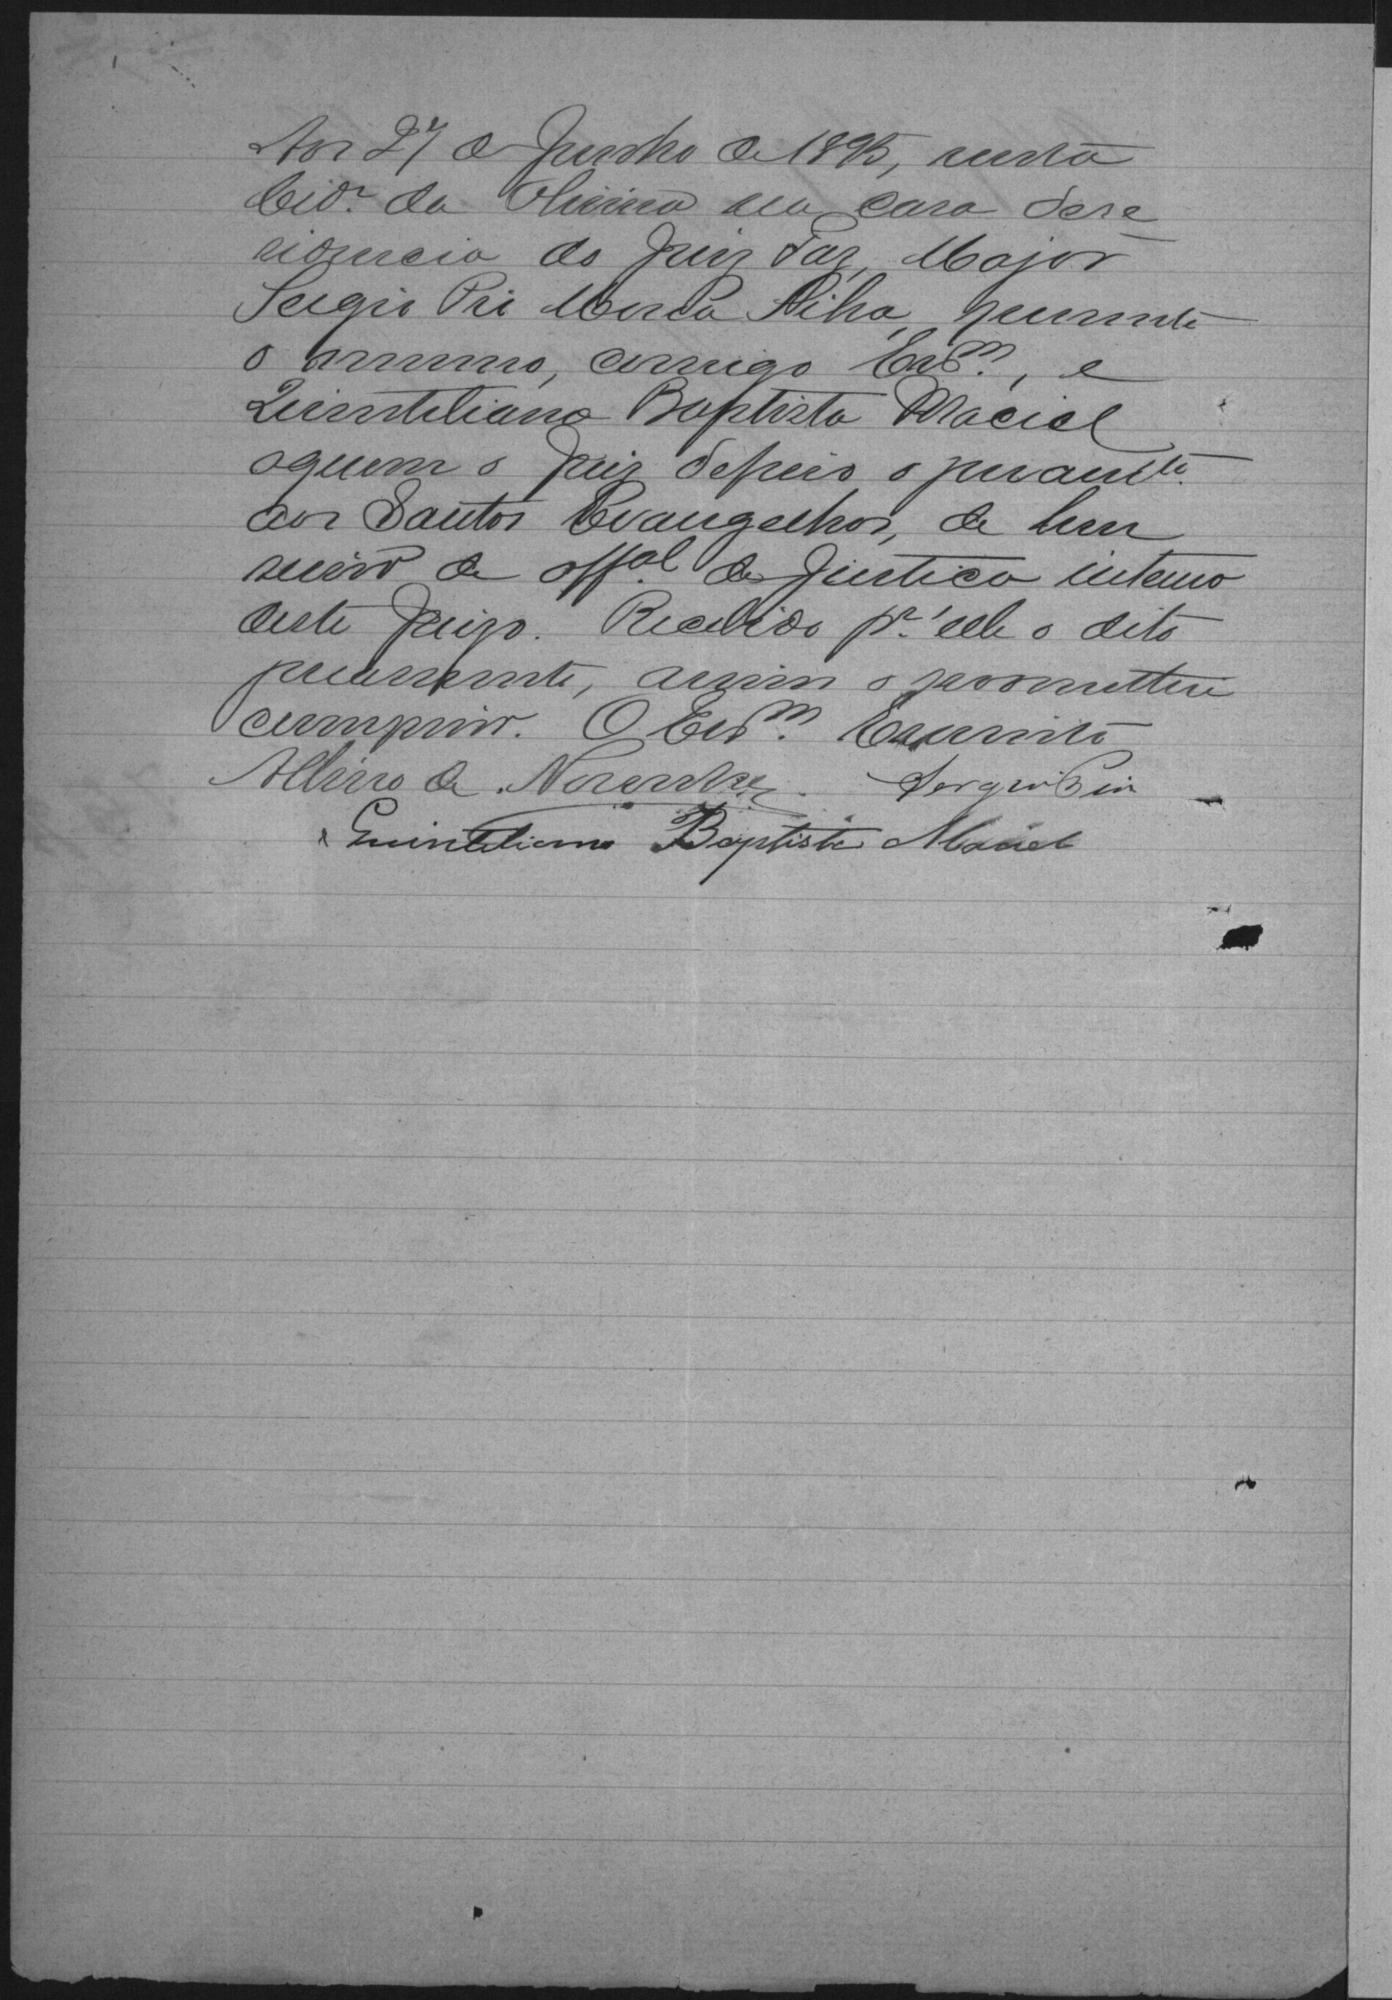 Aos 27 de Junho de 1895, nesta
Cid.e da Oliveira na casa de re
sidencia do Juiz Paz, Major
Sergio Pio perante
o mesmo, comigo Escr.m, e
Quintiliano Baptista Maciel
a quem o Juiz o juram.to
aos Santos Evangelhos, de bem
servir de off.al de Justiça interno
deste Juizo. Recebido p.r elle o dito
juramento, assim o prometteu
cumprir. O Escr.m
Albino de Noronha. Sergio Pio
Quintiliano Baptista Maciel